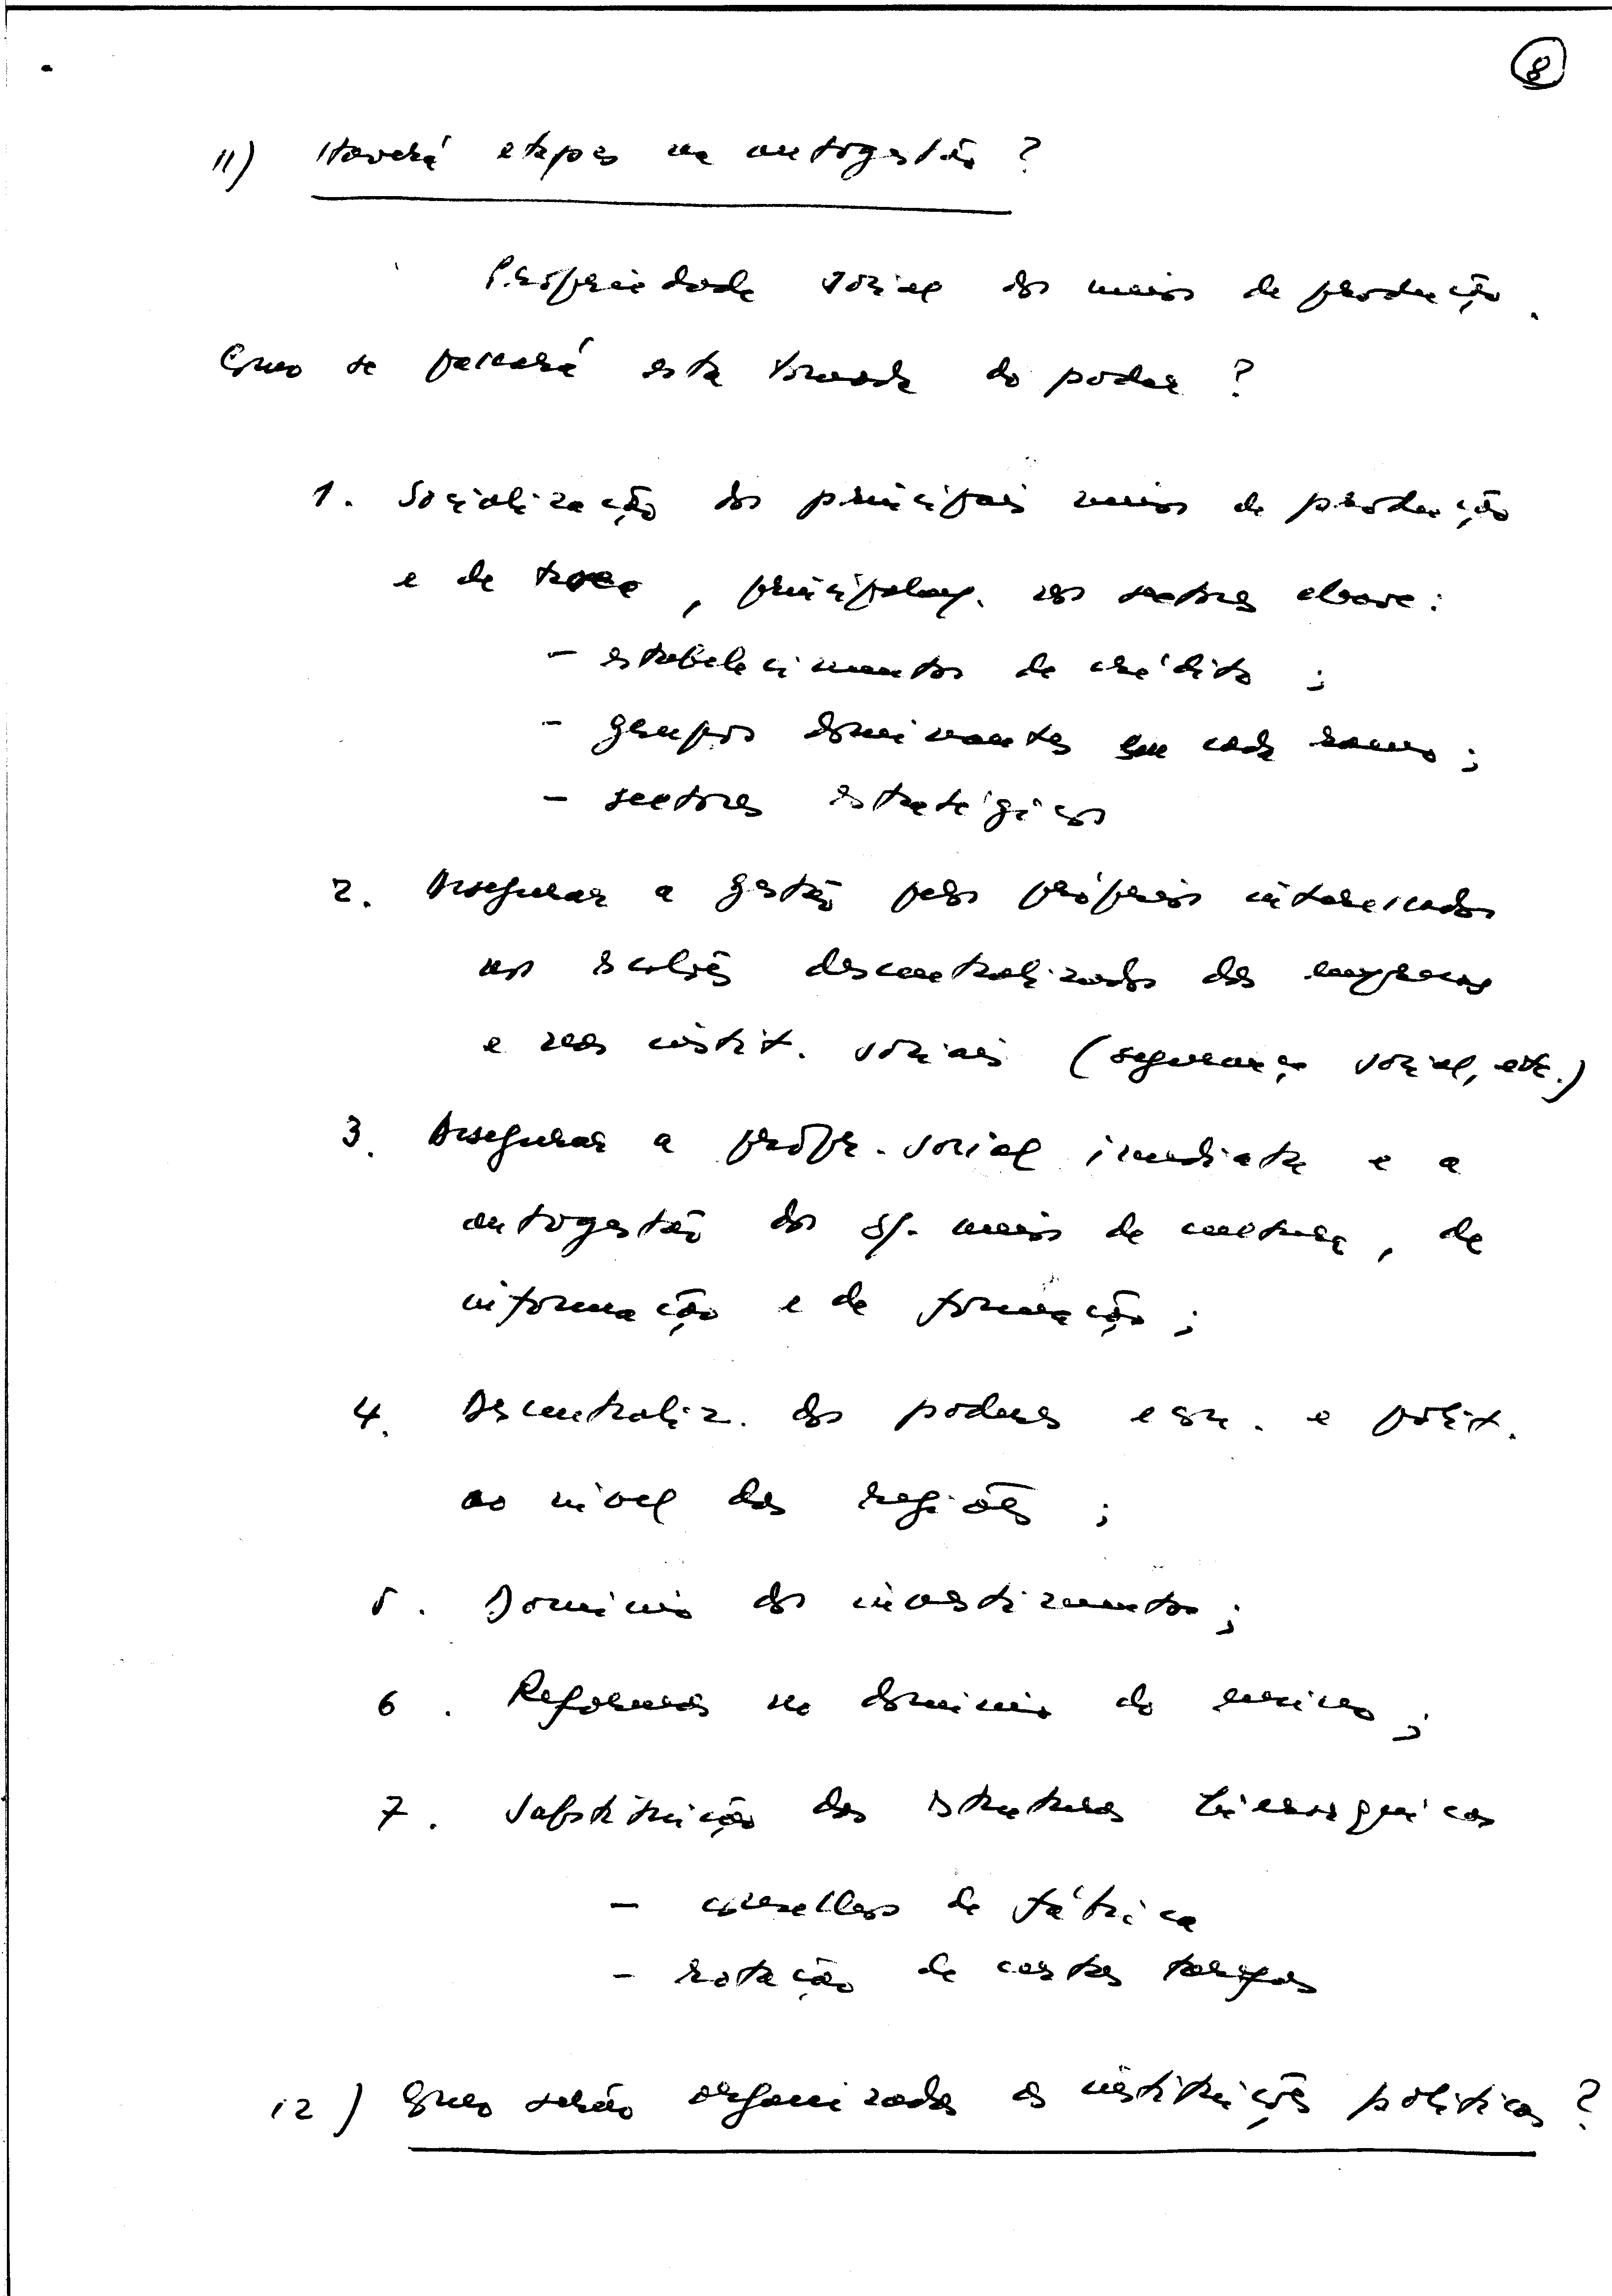 8
11) Haverá etapas na autogestão ?
Propriedade social dos meios de produção.
Como se passará esta tomada do poder ?
1. Socialização dos principais meios de produção
e de troca, principalm. nos sectores chave:
- estabelecimentos de crédito ;
- grupos dominantes em cada ramo ;
- sectores estratégicos
2. Assegurar a gestão pelos próprios interessados
nos escalões descentralizados das empresas
e nas instit. sociais (segurança social, etc.)
3. Assegurar a propr. social imediata e a
autogestão dos meios de cultura, de
informação e de formação ;
4. Descentraliz. dos poderes econ. e polít.
ao nível das regiões ;
5. Domínio dos investimentos ;
6. Reformas no domínio do ensino ;
7. Substituição das estruturas hierárquicas
- conselhos de fábrica
- rotação de certas tarefas
12) Como serão organizadas as instituições políticas ?